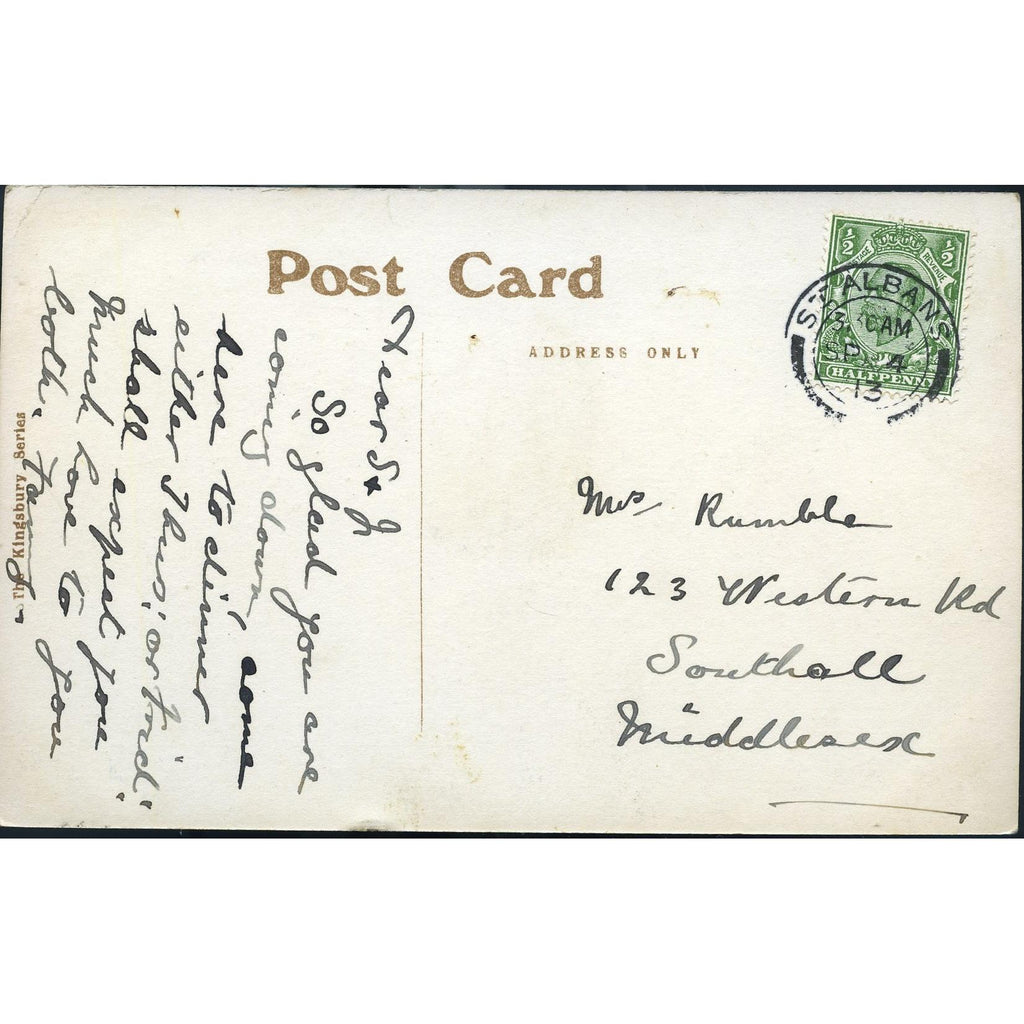 Post Card
ADDRESS ONLY
The Kingsbury Series
1/2
1/2
POSTAGE
REVENUE
HALFPENNY
ST ALBANS
AM
SP 4
13
Dear S & J
So glad you are
coming down, come
here to dinner
either Thurs: or Frid:
shall expect you
Much love to you
both.
Mrs Rumble
123 Western Rd
Southall
Middlesex